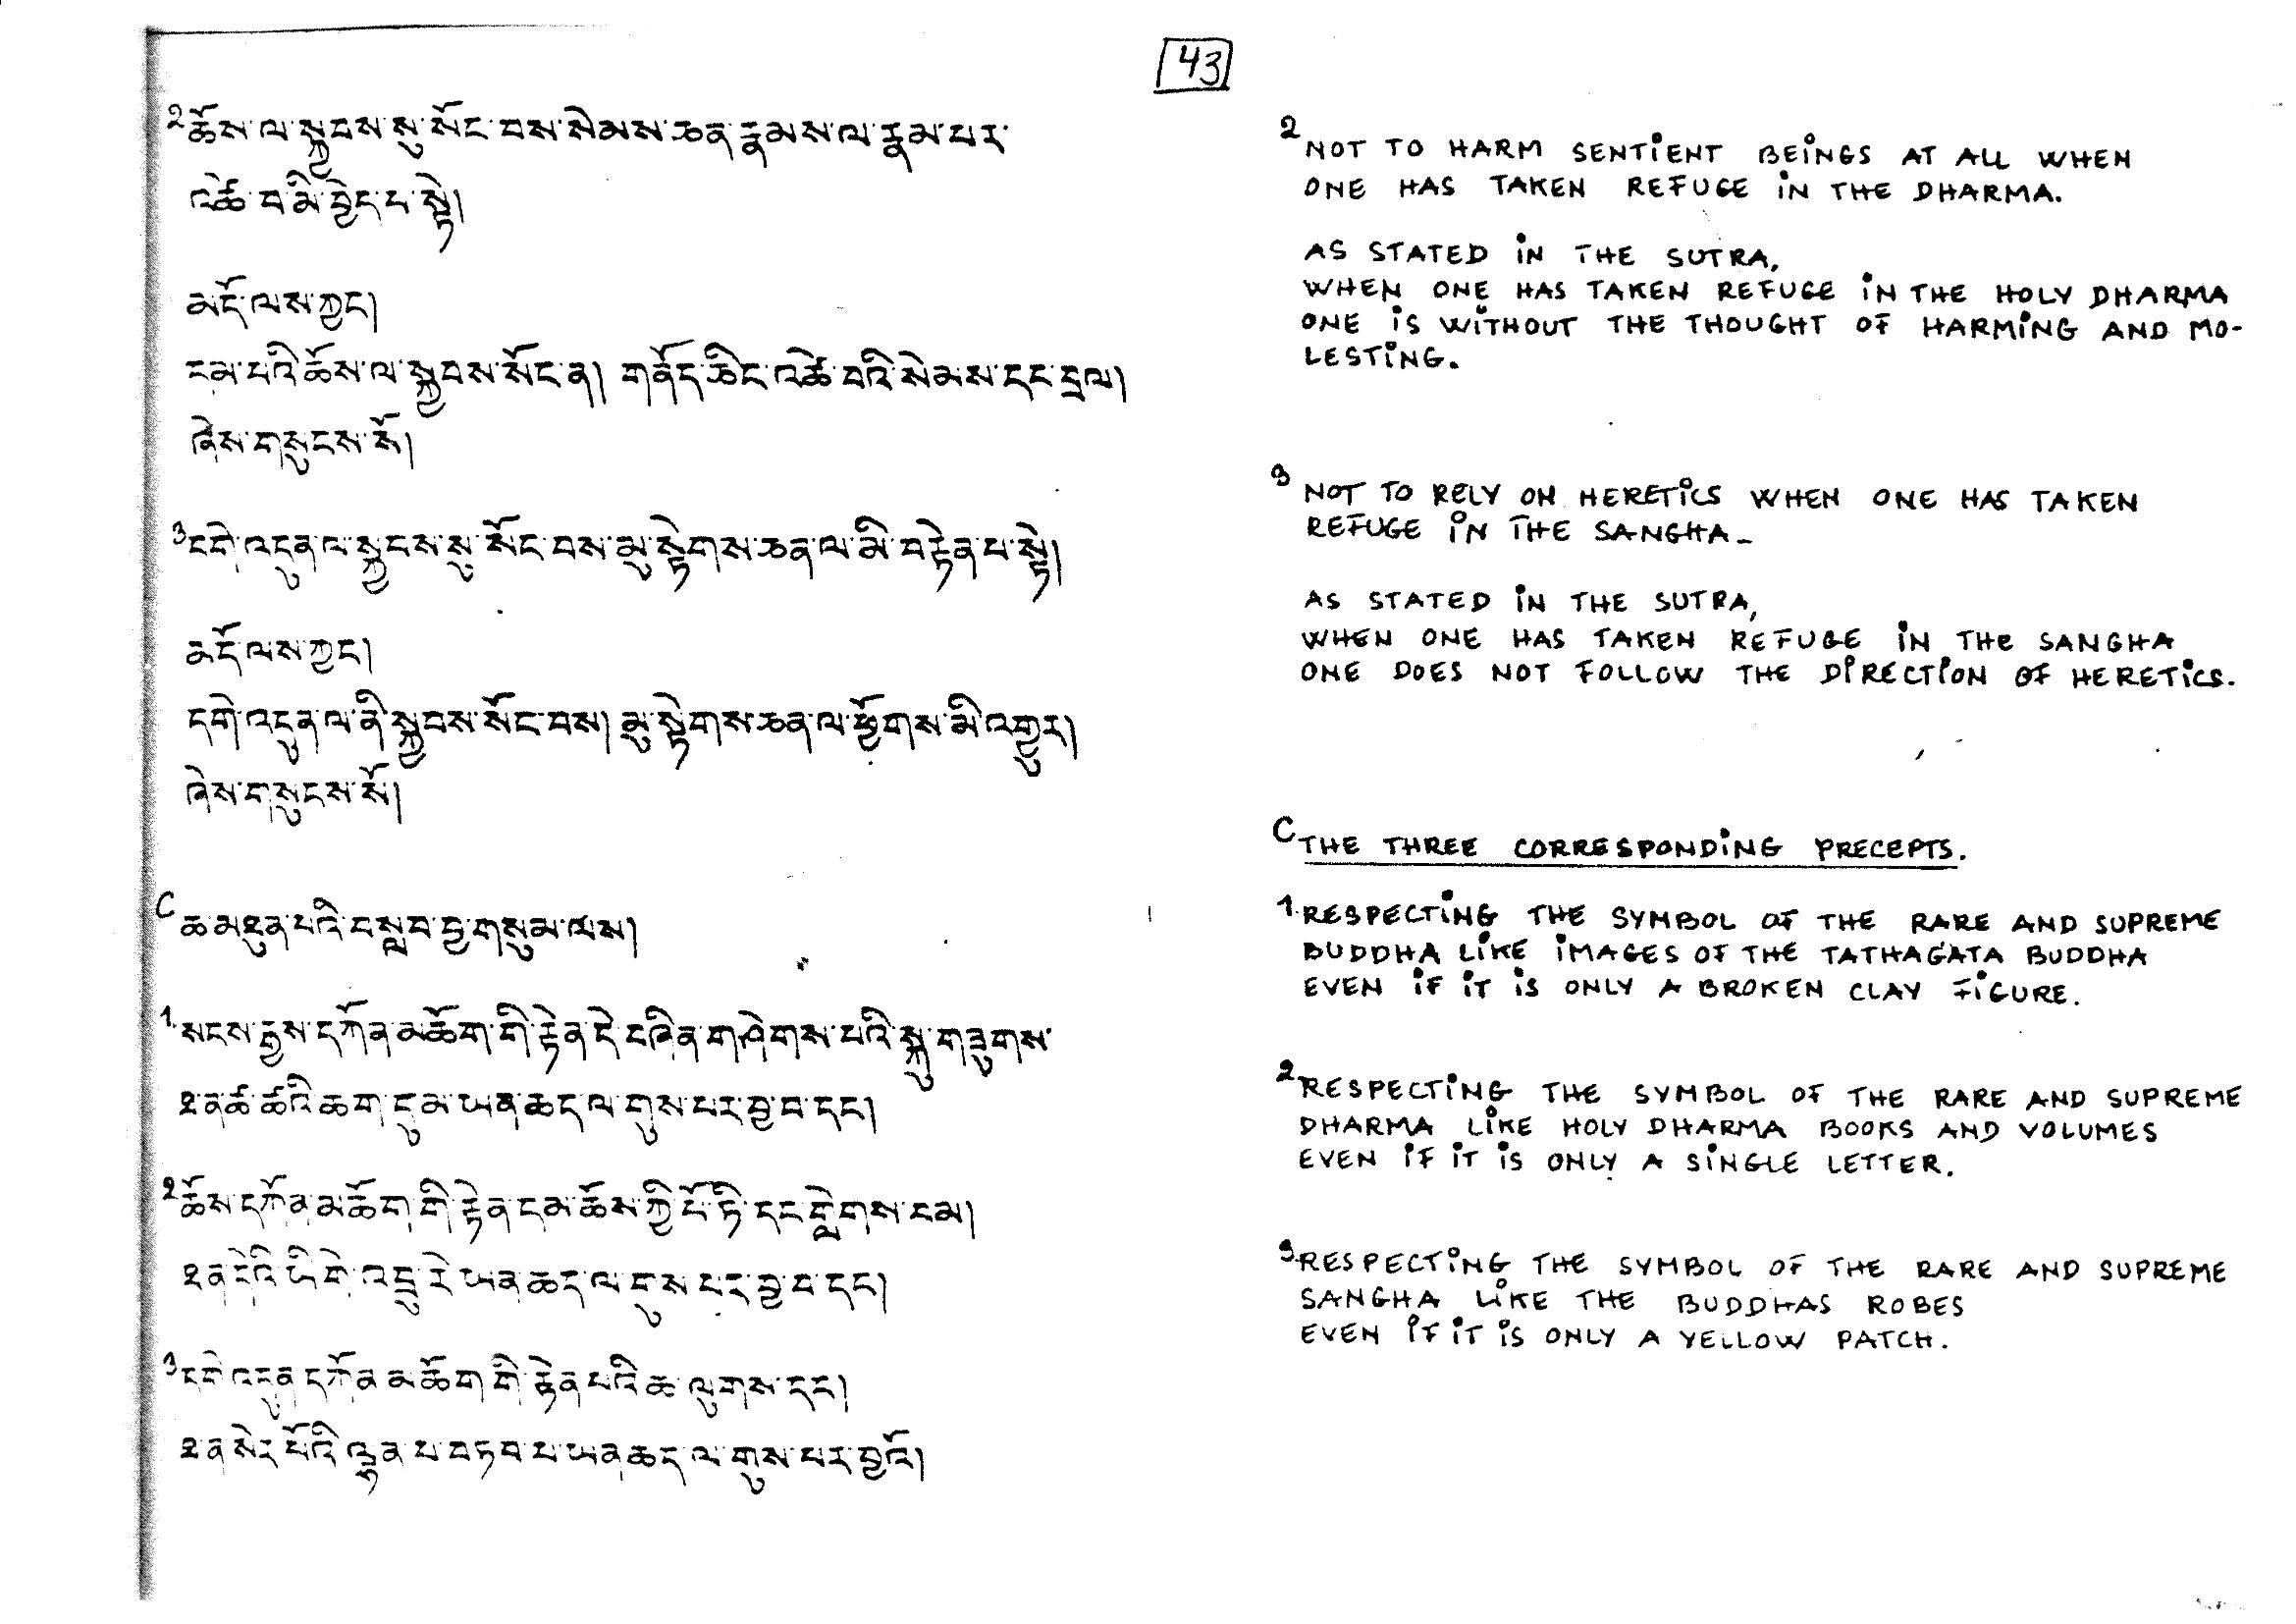 43
2 ཆོས་ལ་སྐྱབས་སུ་སོང་བས་སེམས་ཅན་རྣམས་ལ་རྣམ་པར་
འཚེ་བ་མི་བྱེད་པ་སྟེ།
མདོ་ལས་ཀྱང།
དམ་པའི་ཆོས་ལ་སྐྱབས་སོང་ན། གནོད་ཅིང་འཚེ་བའི་སེམས་དང་བྲལ།
ཞེས་གསུངས་སོ།
3 དགེ་འདུན་ལ་སྐྱབས་སུ་སོང་བས་མུ་སྟེགས་ཅན་ལ་མི་བརྟེན་པ་སྟེ།
མདོ་ལས་ཀྱང།
དགེ་འདུན་ལ་ནི་སྐྱབས་སོང་བས། མུ་སྟེགས་ཅན་ལ་ཕྱོགས་མི་འགྱུར།
ཞེས་གསུངས་སོ།
C ཆ་མཐུན་པའི་བསླབ་བྱ་གསུམ་ལས།
1. སངས་རྒྱས་དཀོན་མཆོག་གི་རྟེན་དེ་བཞིན་གཤེགས་པའི་སྐུ་གཟུགས་
ཐ་ན་ཚ་ཚའི་ཆག་དུམ་ཡན་ཆད་ལ་གུས་པར་བྱ་བ་དང།
2 ཆོས་དཀོན་མཆོག་གི་རྟེན་དམ་ཆོས་ཀྱི་པོ་ཏི་དང་གླེགས་བམ།
ཐ་ན་དེའི་ཡི་གེ་འབྲུ་རེ་ཡན་ཆད་ལ་གུས་པར་བྱ་བ་དང།
3 དགེ་འདུན་དཀོན་མཆོག་གི་རྟེན་པའི་ཆ་ལུགས་དང།
ཐ་ན་སེར་པོའི་ལྷན་པ་བཏབ་པ་ཡན་ཆད་ལ་གུས་པར་བྱའོ།
2 NOT TO HARM SENTIENT BEINGS AT ALL WHEN
ONE HAS TAKEN REFUGE IN THE DHARMA.
AS STATED IN THE SUTRA,
WHEN ONE HAS TAKEN REFUGE IN THE HOLY DHARMA
ONE IS WITHOUT THE THOUGHT OF HARMING AND MO-
LESTING.
3 NOT TO RELY ON HERETICS WHEN ONE HAS TAKEN
REFUGE IN THE SANGHA-
AS STATED IN THE SUTRA,
WHEN ONE HAS TAKEN REFUGE IN THE SANGHA
ONE DOES NOT FOLLOW THE DIRECTION OF HERETICS.
C THE THREE CORRESPONDING PRECEPTS.
1. RESPECTING THE SYMBOL OF THE RARE AND SUPREME
BUDDHA LIKE IMAGES OF THE TATHAGATA BUDDHA
EVEN IF IT IS ONLY A BROKEN CLAY FIGURE.
2 RESPECTING THE SYMBOL OF THE RARE AND SUPREME
DHARMA LIKE HOLY DHARMA BOOKS AND VOLUMES
EVEN IF IT IS ONLY A SINGLE LETTER.
3 RESPECTING THE SYMBOL OF THE RARE AND SUPREME
SANGHA LIKE THE BUDDHAS ROBES
EVEN IF IT IS ONLY A YELLOW PATCH.